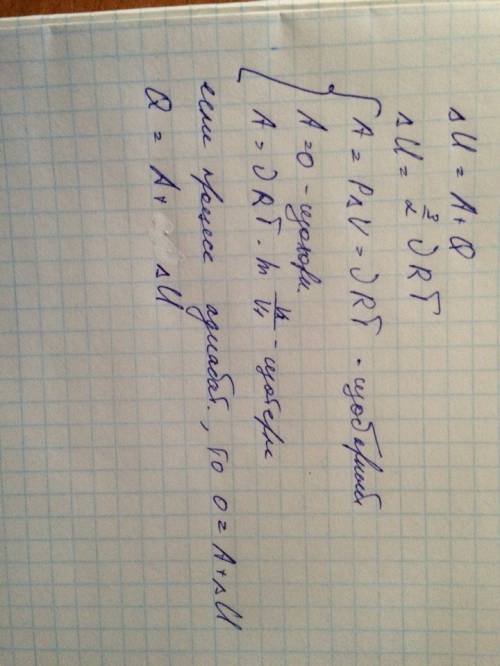 ΔU = A + Q
ΔU = 3/2 νRT
A = PΔV = νRT - изобарный
A = 0 - изохорн.
A = νRT · ln V₂/V₁ - изотерм
если процесс адиабат., то 0 = A + ΔU
Q = A + ΔU